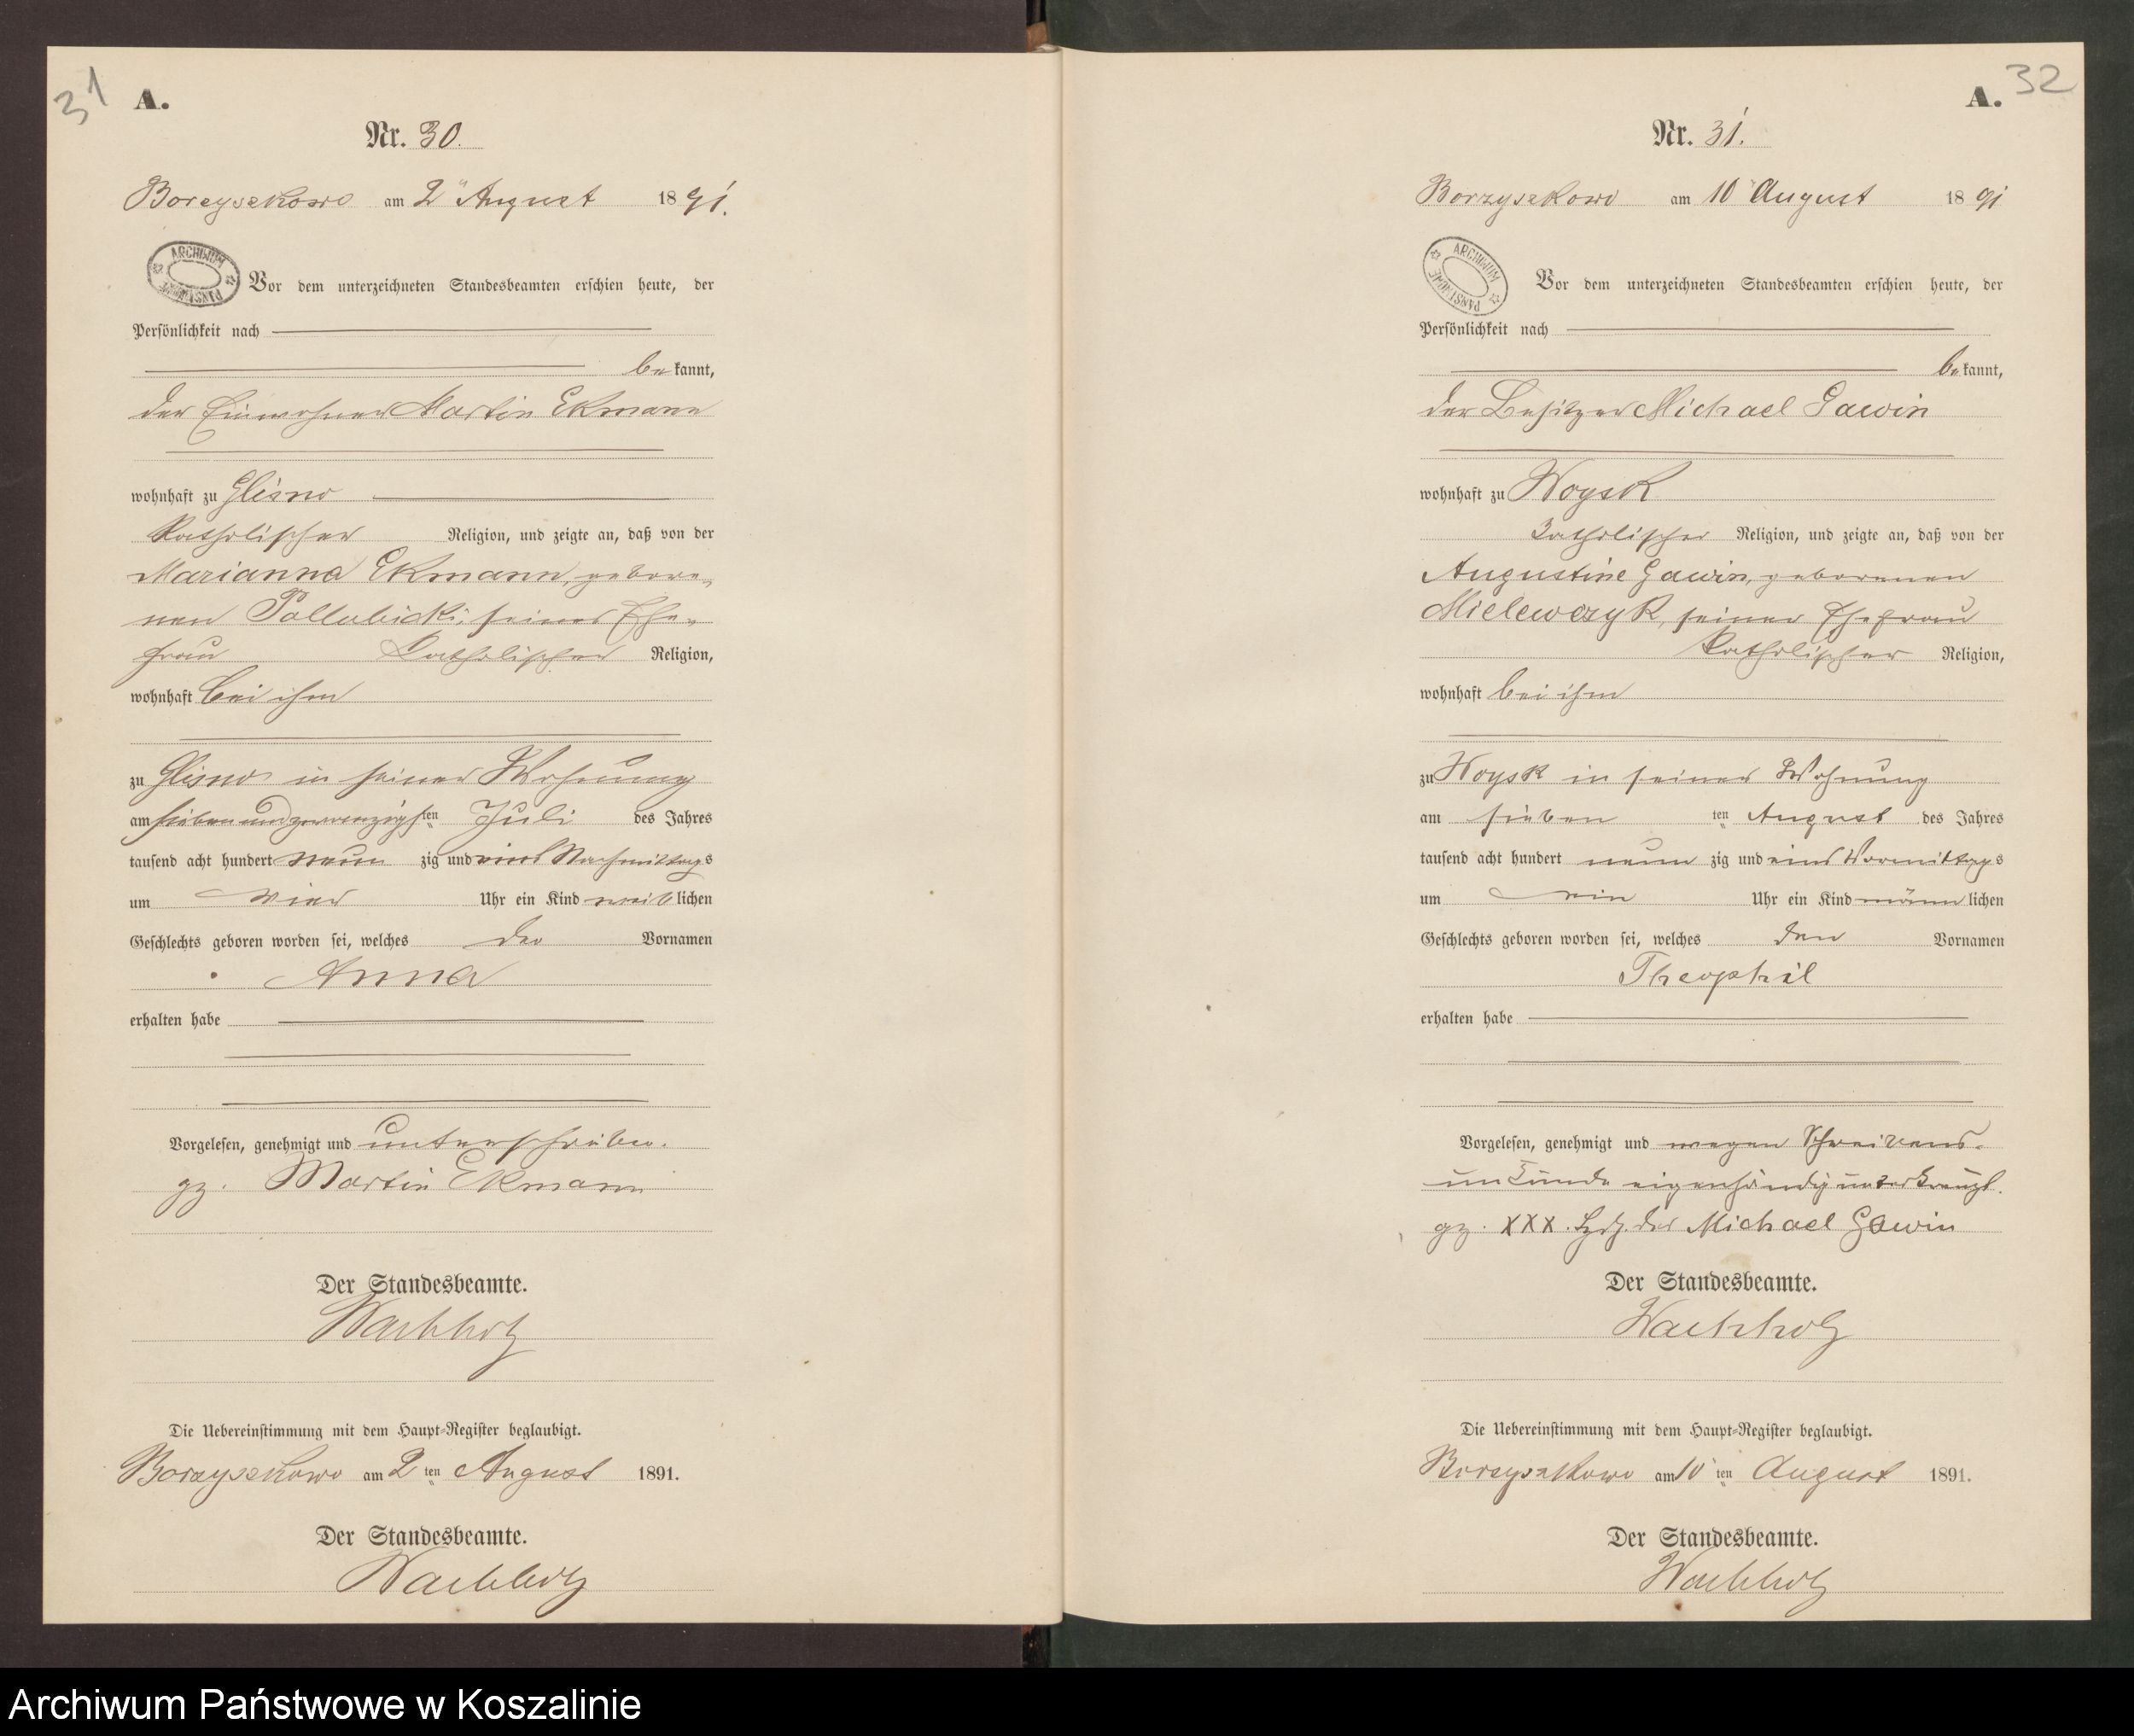 31
A.
Nr. 30.
Borzyszkowo am 2ten August 1891.
ARCHIWUM PAŃSTWOWE
Vor dem unterzeichneten Standesbeamten erschien heute, der
Persönlichkeit nach
bekannt,
der Einwohner Martin Ekmann
wohnhaft zu Glisno
katholischer Religion, und zeigte an, daß von der
Marianna Ekmann, gebore-
nen Pallubicki, seiner Ehe-
frau katholischer Religion,
wohnhaft bei ihm
zu Glisno in seiner Wohnung
am siebenundzwanzigsten Juli des Jahres
tausend acht hundert neunzig und eins Nachmittags
um vier Uhr ein Kind weiblichen
Geschlechts geboren worden sei, welches den Vornamen
Anna
erhalten habe
Vorgelesen, genehmigt und unterschrieben.
gz. Martin Ekmann
Der Standesbeamte.
Wachholz
Die Uebereinstimmung mit dem Haupt-Register beglaubigt.
Borzyszkowo am 2ten August 1891.
Der Standesbeamte.
Wachholz
32
A.
Nr. 31.
Borzyszkowo am 10 August 1891
ARCHIWUM PAŃSTWOWE
Vor dem unterzeichneten Standesbeamten erschien heute, der
Persönlichkeit nach
bekannt,
der Besitzer Michael Gawin
wohnhaft zu Woysk
katholischer Religion, und zeigte an, daß von der
Augustine Gawin, geborenen
Mielewczyk, seiner Ehefrau
katholischer Religion,
wohnhaft bei ihm
zu Woysk in seiner Wohnung
am sieben ten August des Jahres
tausend acht hundert neunzig und eins Vormittags
um ein Uhr ein Kind männlichen
Geschlechts geboren worden sei, welches den Vornamen
Theophil
erhalten habe
Vorgelesen, genehmigt und wegen Schreibens-
unkunde eigenhändig unterkreuzt.
gz. XXX. Hdz. des Michael Gawin
Der Standesbeamte.
Wachholz
Die Uebereinstimmung mit dem Haupt-Register beglaubigt.
Borzyszkowo am 10ten August 1891.
Der Standesbeamte.
Wachholz
Archiwum Państwowe w Koszalinie